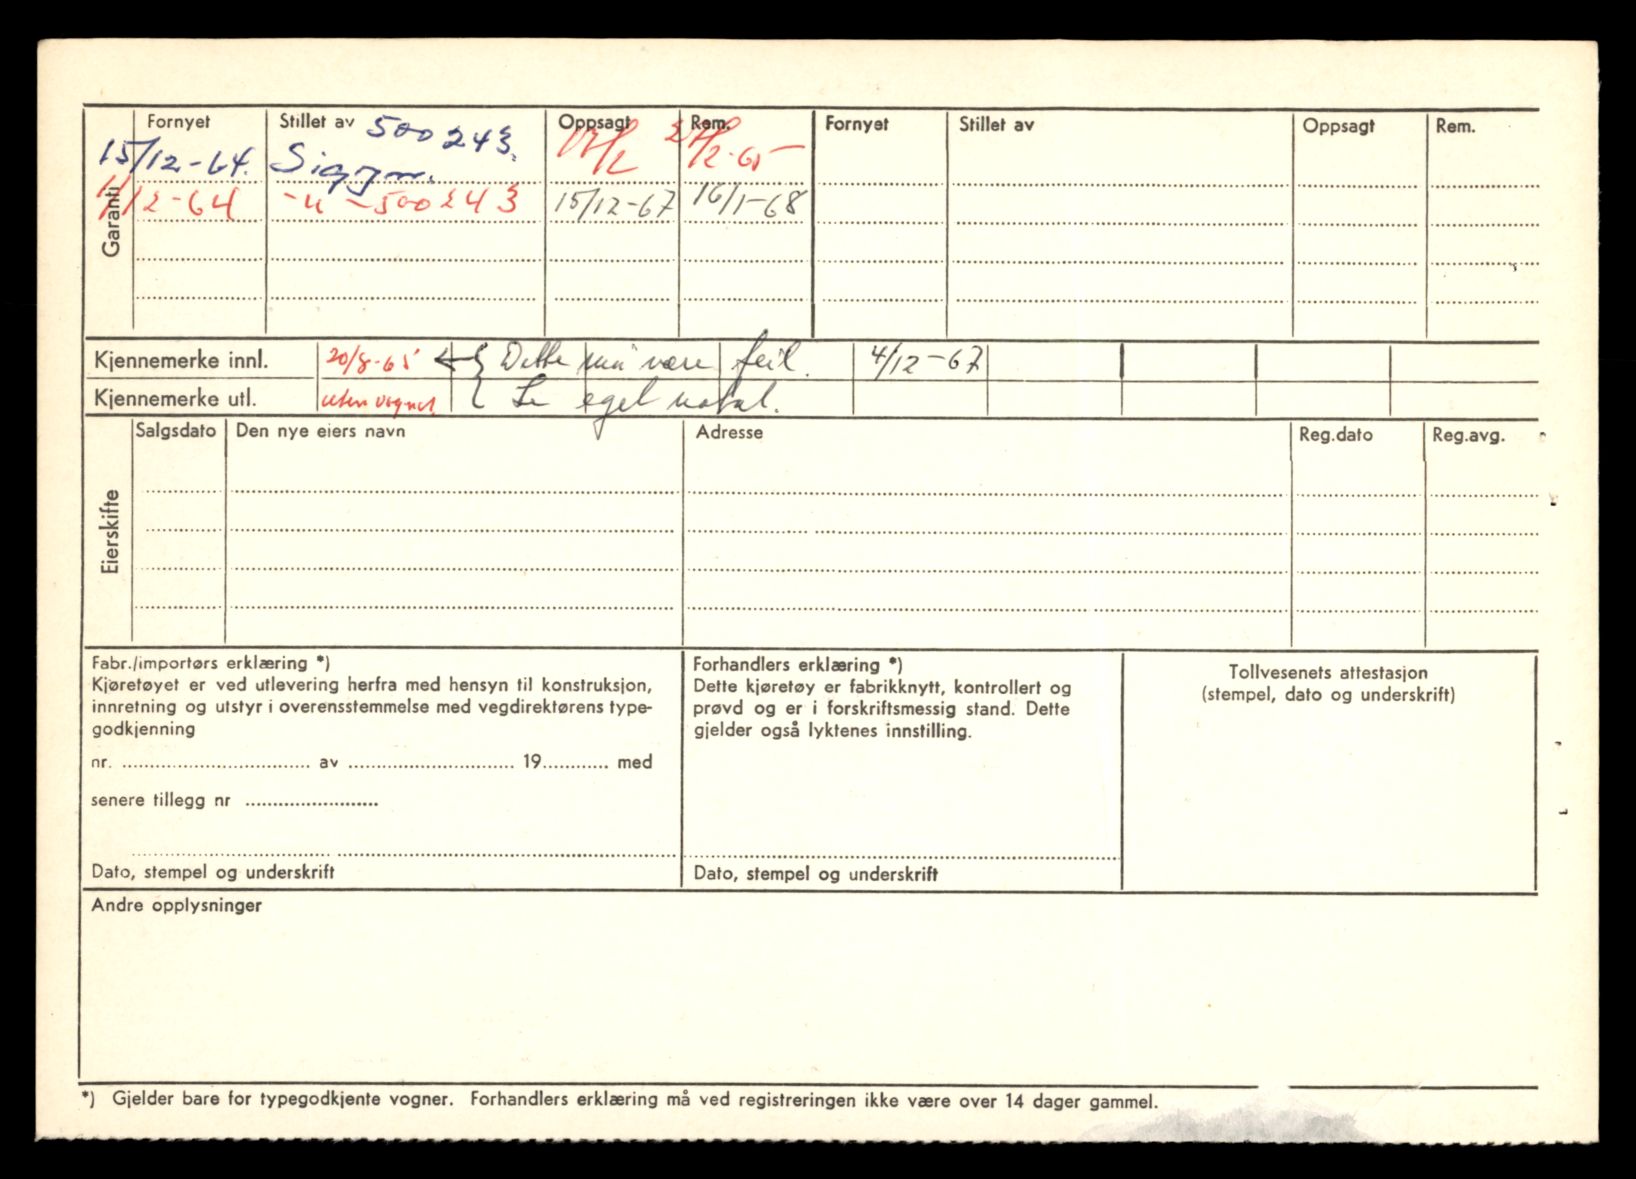 Garanti
Fornyet Stillet av 500243. Oppsagt Rem. Fornyet Stillet av Oppsagt Rem.
15/12-64. 2/2-65
1/12-64 -"- 500243 15/12-67 16/1-68
Kjennemerke innl. 20/8-65 Dette må være feil. 4/12-67
Kjennemerke utl. uten vognk Se eget notat.
Eierskifte
Salgsdato Den nye eiers navn Adresse Reg.dato Reg.avg.
Fabr./importørs erklæring *)
Kjøretøyet er ved utlevering herfra med hensyn til konstruksjon,
innretning og utstyr i overensstemmelse med vegdirektørens type-
godkjenning
nr. av 19 med
senere tillegg nr
Dato, stempel og underskrift
Forhandlers erklæring *)
Dette kjøretøy er fabrikknytt, kontrollert og
prøvd og er i forskriftsmessig stand. Dette
gjelder også lyktenes innstilling.
Dato, stempel og underskrift
Tollvesenets attestasjon
(stempel, dato og underskrift)
Andre opplysninger
*) Gjelder bare for typegodkjente vogner. Forhandlers erklæring må ved registreringen ikke være over 14 dager gammel.